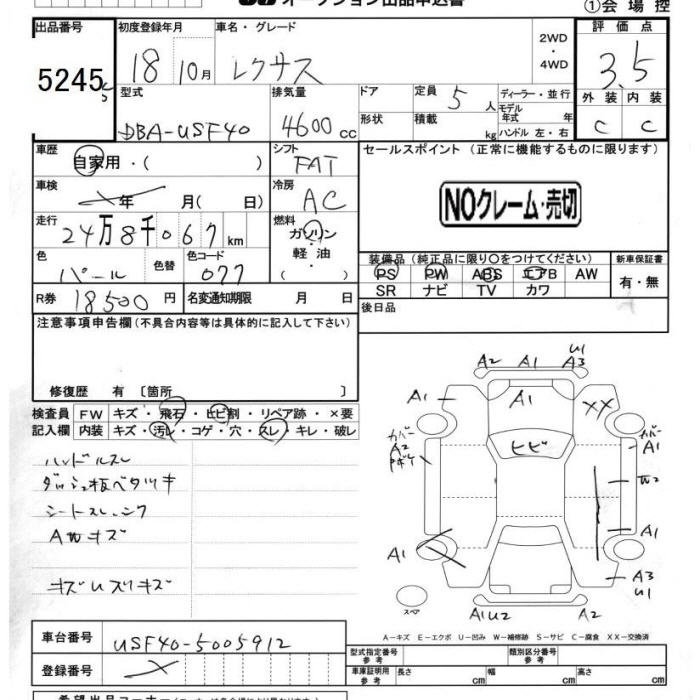 オークション出品申込書
①会場控
出品番号
5245
初度登録年月
18 10月
車名・グレード
レクサス
2WD
・
4WD
評価点
3.5
外装 内装
C C
型式
DBA-USF40
排気量
4600cc
ドア
形状
定員
5人
積載
kg
ディーラー・並行
モデル年式 年
ハンドル 左・右
車歴
自家用・( )
シフト
FAT
セールスポイント (正常に機能するものに限ります)
NOクレーム・売切
車検
年 月( 日)
冷房
AC
走行
24万8千067km
燃料
ガソリン
・軽油・
( )
色
パール
色替
色コード
077
R券
18500円
名変通知期限 月 日
装備品(純正品に限り○をつけてください)
PS PW ABS エアB AW
SR ナビ TV カワ
新車保証書
有・無
後日品
注意事項申告欄(不具合内容等は具体的に記入して下さい)
修復歴 有 〔箇所 〕
検査員記入欄
FW キズ・飛石・ヒビ割・リペア跡・×要
内装 キズ・汚レ・コゲ・穴・スレ・キレ・破レ
ハンドルスレ
ダッシュ板ベタツキ
シート
AWキズ
キズ
A2 A1 U1 A3
A1 A1 XX
カバー A2
ヒビ
カバー A1
W2
A1 A1
A3 U1
スペア
A1U2 A2
A-キズ E-エクボ U-凹み W-補修跡 S-サビ C-腐食 XX-交換済
車台番号
USF40-5005912
登録番号
型式指定番号 参考
類別区分番号 参考
車庫証明用 参考
長さ cm
幅 cm
高さ cm
希望出品コーナー